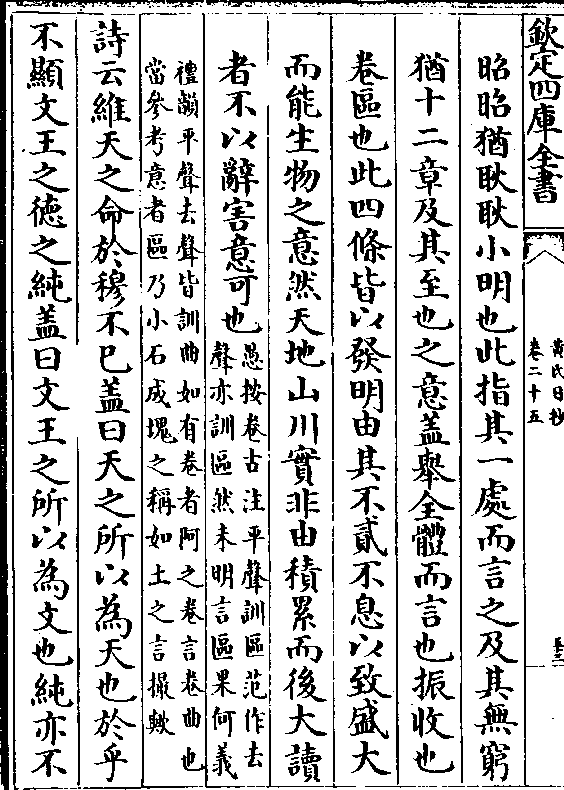 欽定四庫全書
黄氏日抄
卷二十五
昭昭猶耿耿小明也此指其一處而言之及其無窮
猶十二章及其至也之意蓋舉全體而言也振收也
卷區也此四條皆以發明由其不貳不息以致盛大
而能生物之意然天地山川實非由積累而後大讀
者不以辭害意可也
愚按卷古注平聲訓區范作去
聲亦訓區然未明言區果何義
禮韻平聲去聲皆訓曲如有卷者阿之卷言卷曲也
當參考意者區乃小石成塊之稱如土之言撮歟
詩云維天之命於穆不已蓋曰天之所以為天也於乎
不顯文王之德之純蓋曰文王之所以為文也純亦不